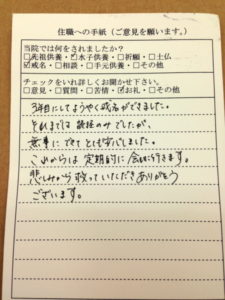 住職への手紙（ご意見を願います。）
当院では何をされましたか？
□先祖供養・☑水子供養・□祈願・□土仏
☑戒名・□相談・□手元供養・□その他
チェックをいれ詳しくお聞かせ下さい。
□意見・□質問・□苦情・☑お礼・□その他
3年目にしてようやく戒名ができました。
それまでは 読経のみでしたが、
無事に できて とても安心しました。
これからは 定期的に 会いに行きます。
悲しみから 救っていただき ありがとう
ございます。